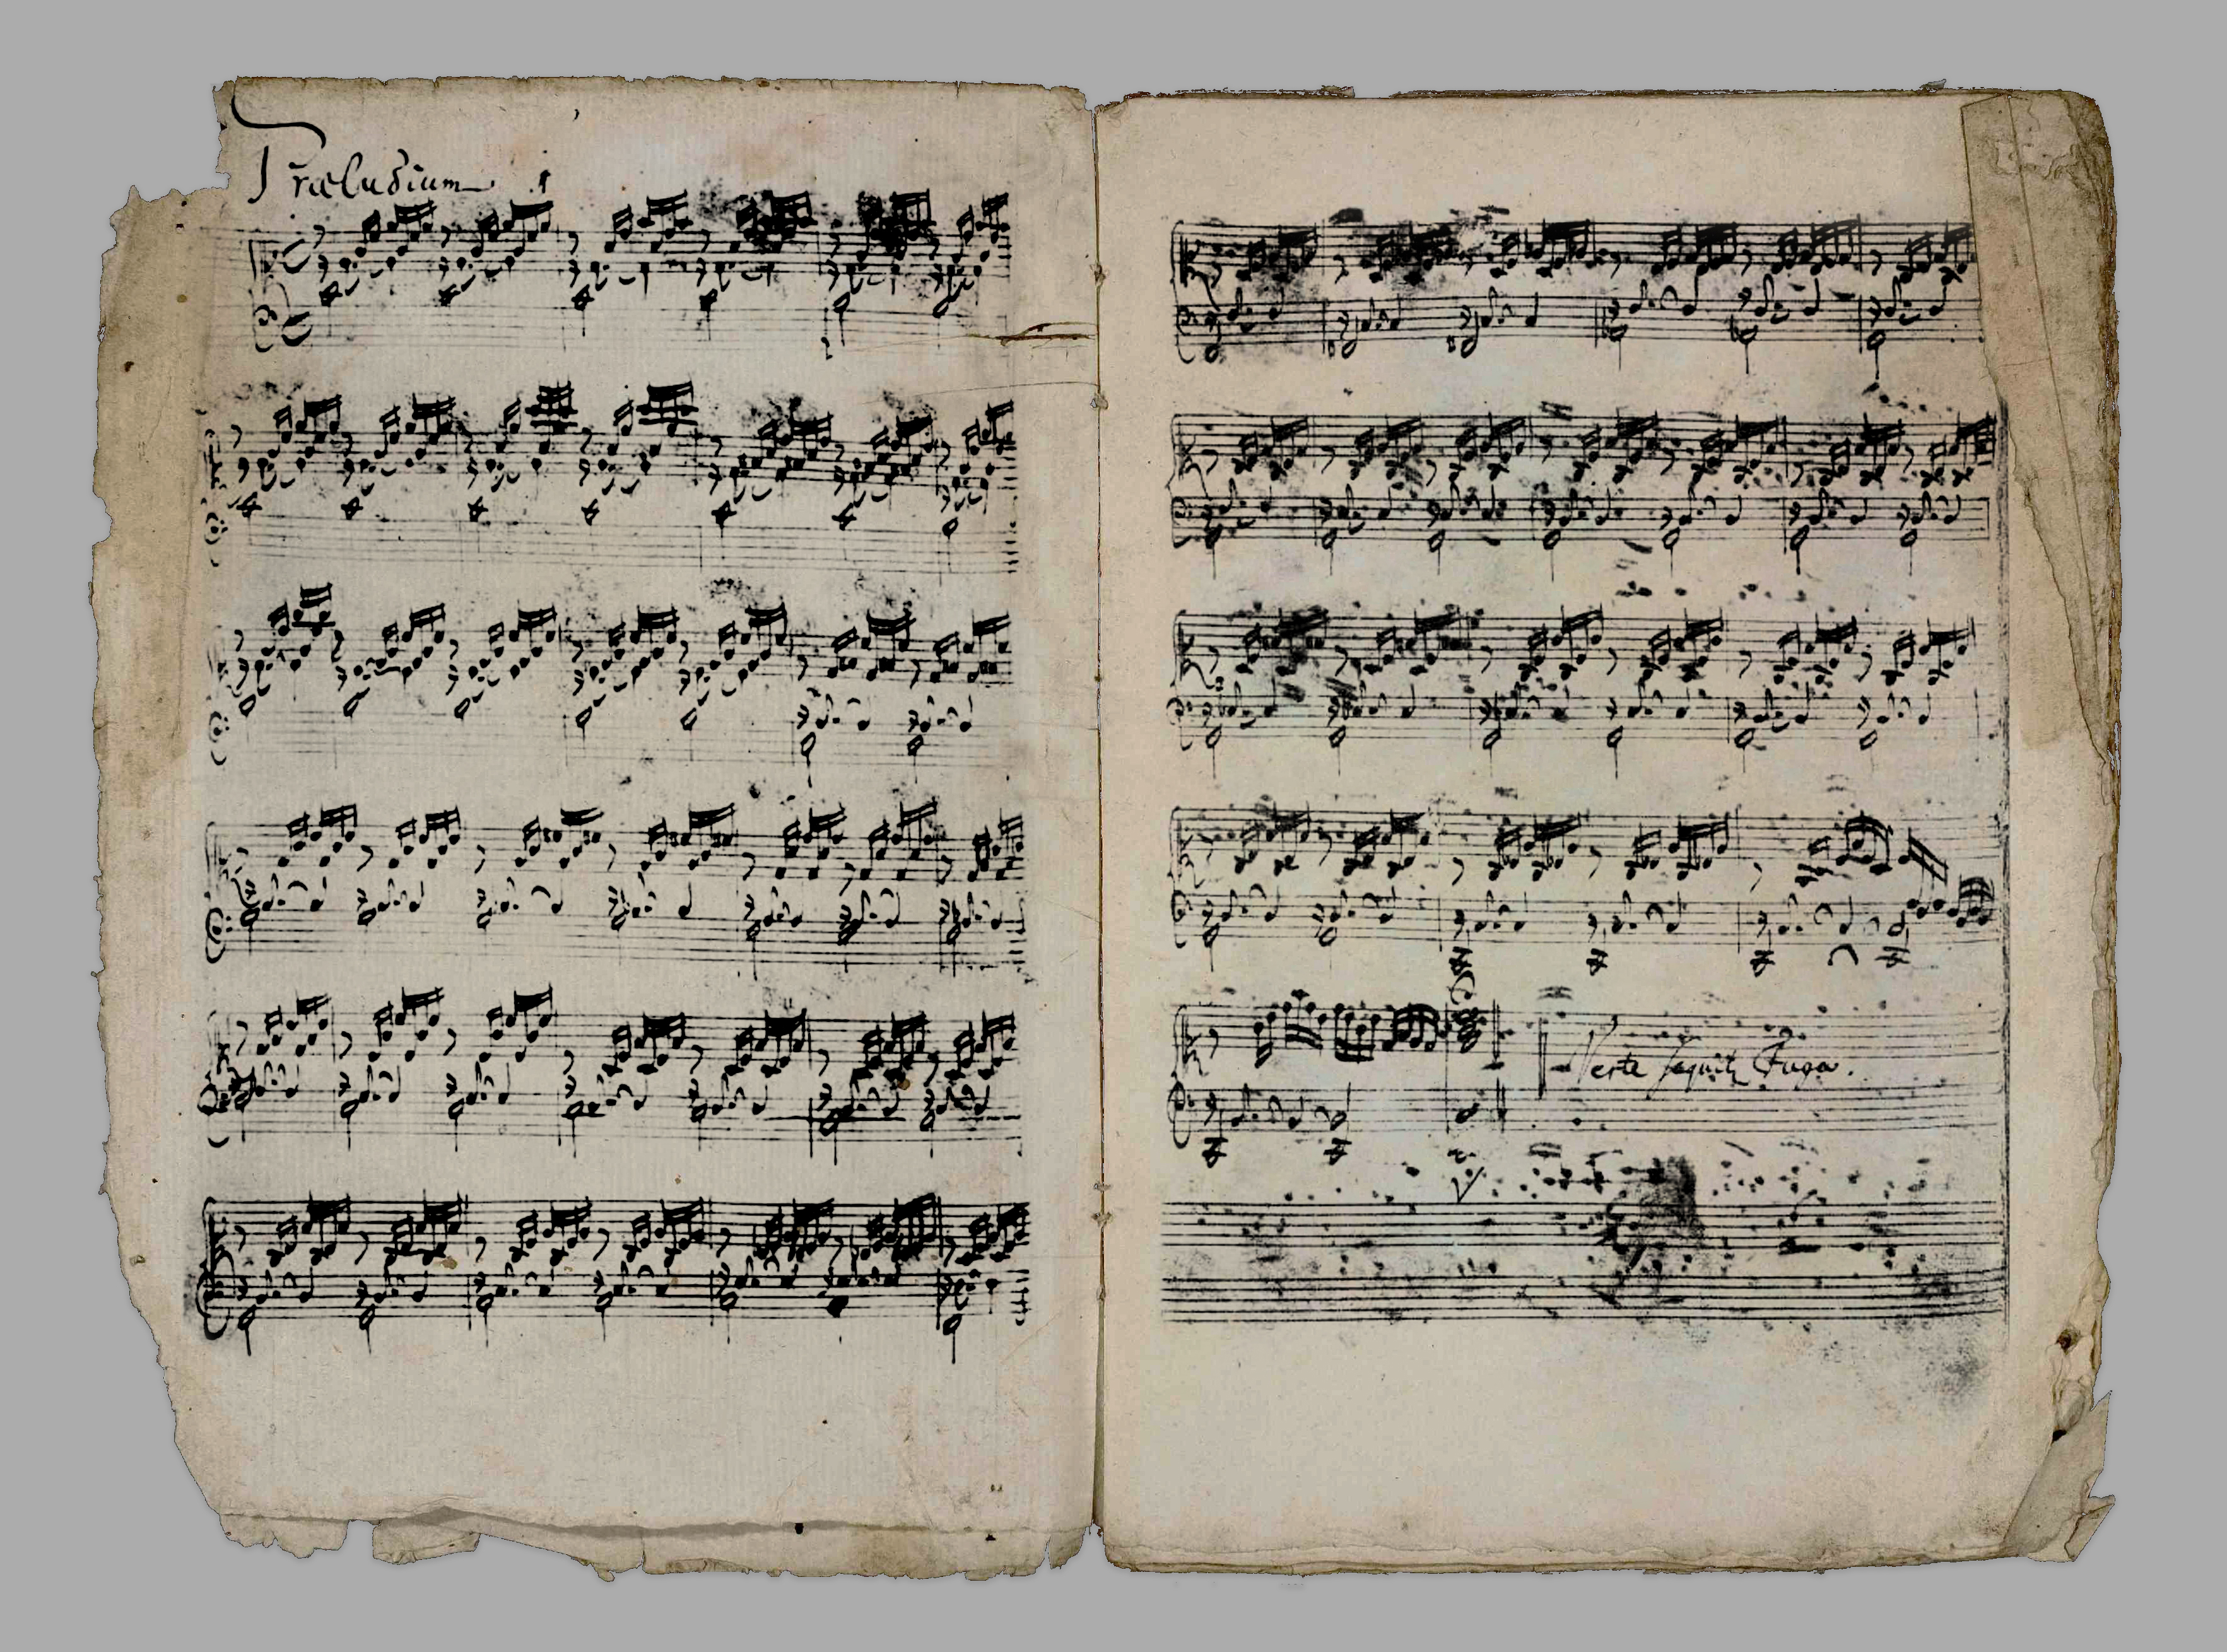 Præludium 1
Verte sequitur Fuga.